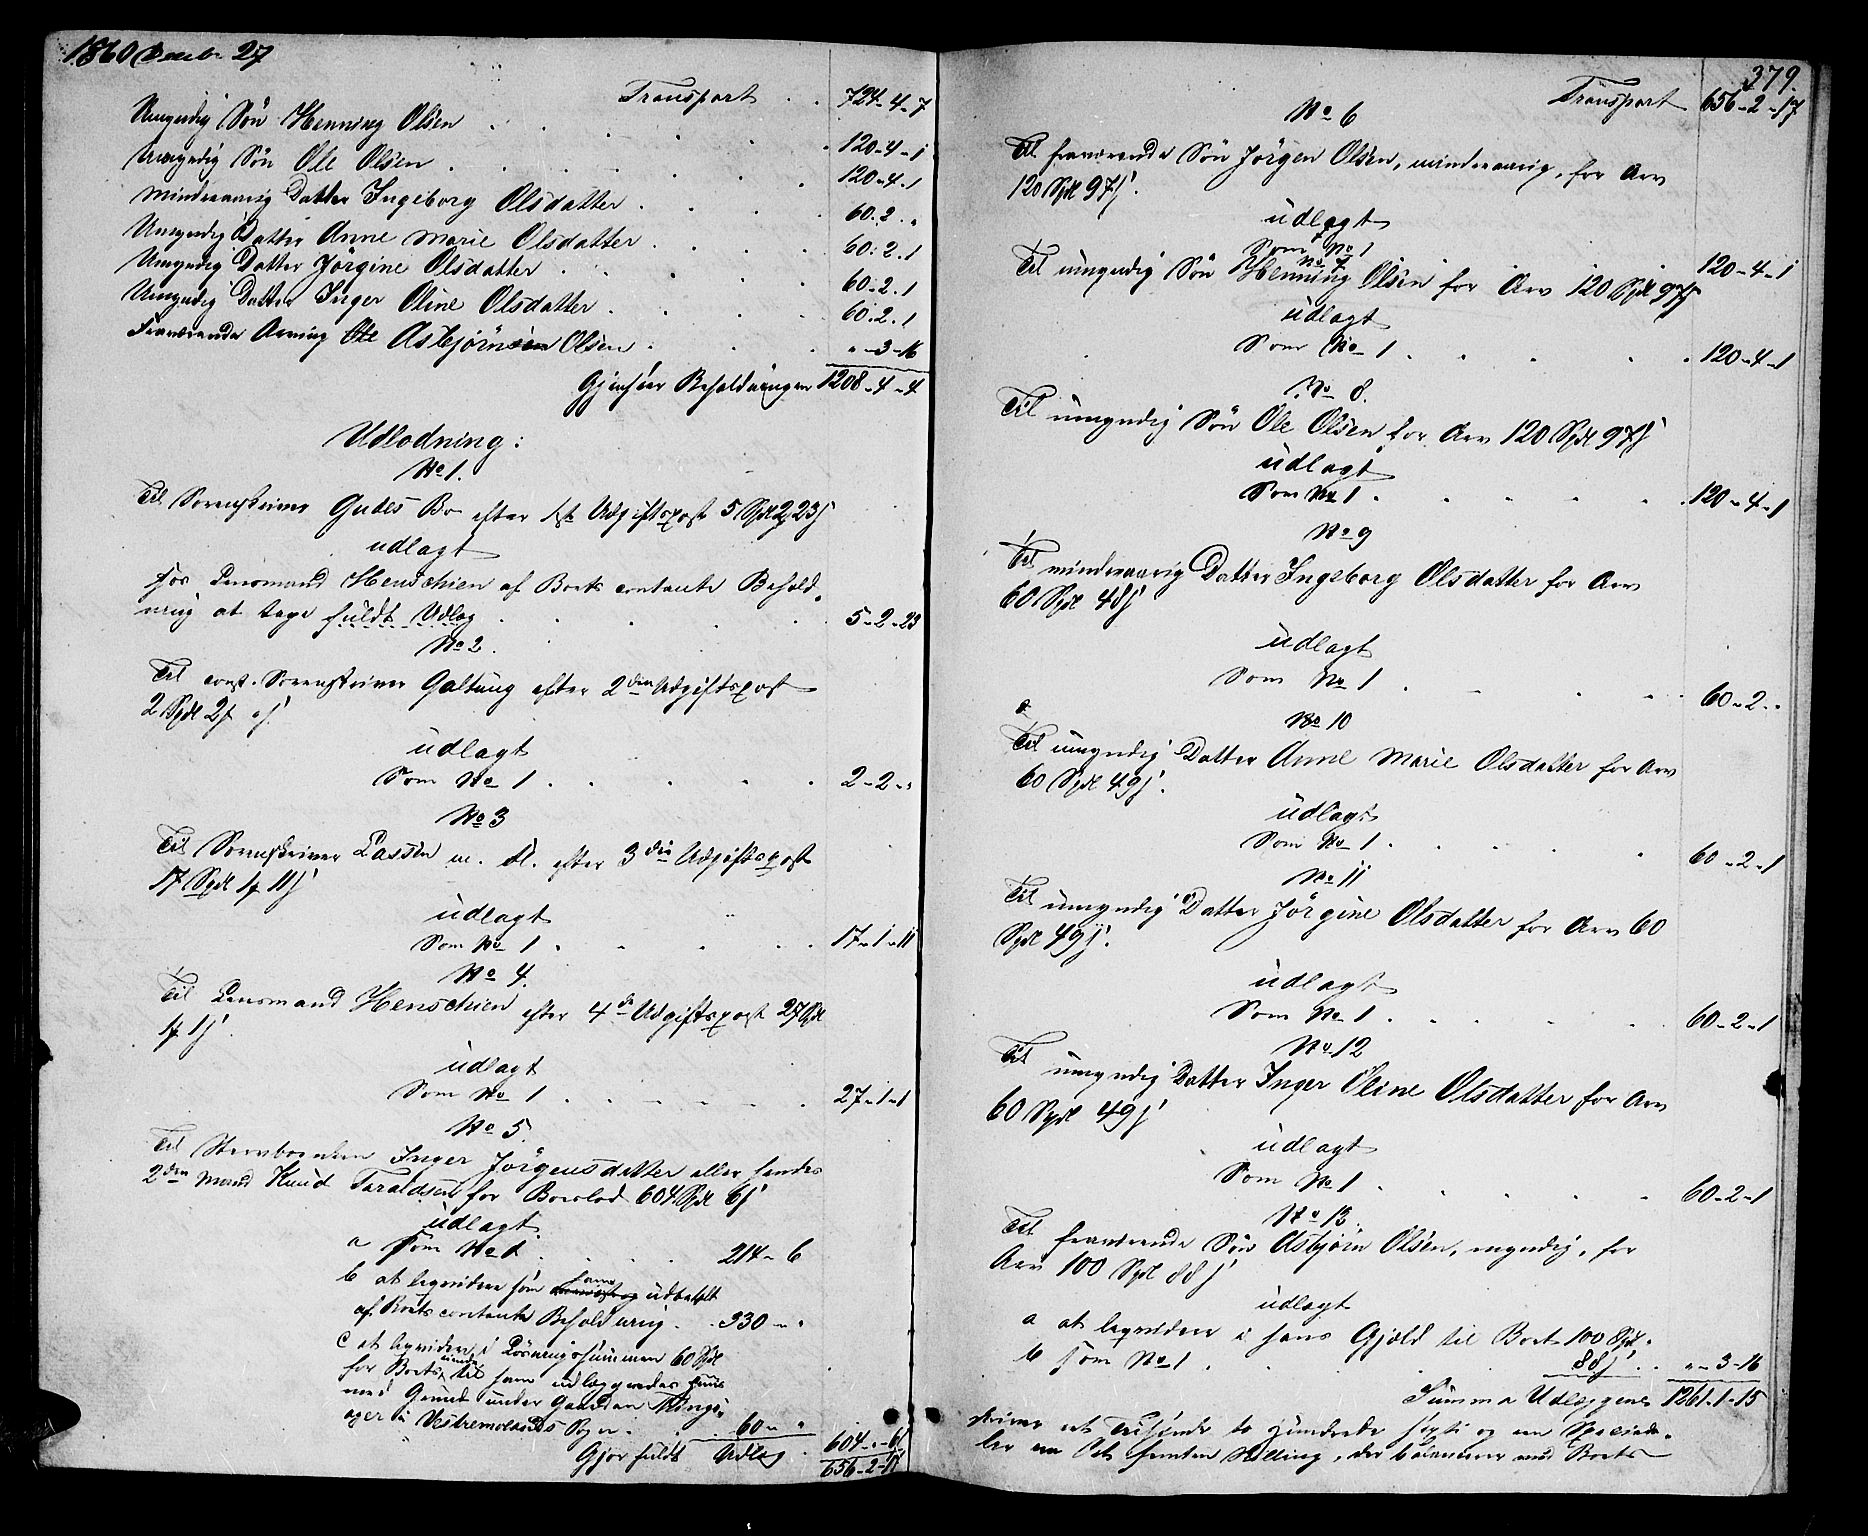 1860 Decbr 27
Transport . . 724-4-7
Umyndig Søn Henning Olsen . . . 120-4-1
Umyndig Søn Ole Olsen . . . 120-4-1
Mindreaarig Datter Ingeborg Olsdatter . . . 60-2-"
Umyndig Datter Anne Marie Olsdatter . . . 60-2-1
Umyndig Datter Jörgine Olsdatter . . . 60-2-1
Umyndig Datter Inger Oline Olsdatter . . . 60-2-1
Fraværende Arving Ole Asbjörnsen Olsen . . . "-3-16
Gjenhver Beholdningen 1208-4-4
Udlodning:
No 1.
Til Sorenskriver Gudes Bo efter 1ste Udgiftspost 5 Spdl 2 23 s
udlagt
hos Lensmand Henschien af Boets contante Behold-
ning at tage fuldt Udlæg . . . 5-2-23
No 2.
Til const. Sorenskriver Galtung efter 2den Udgiftspost
2 Spdl 2
udlagt
Som No 1 . . . 2-2-"
No 3
Til Sorenskriver Lassen m. fl. efter 3die Udgiftspost
17 Spdl 1 11 s
udlagt
Som No 1 . . . 17-1-11
No 4.
Til Lensmand Henschien efter 4de Udgiftspost 27 Spdl
1 1 s
udlagt
Som No 1 . . . 27-1-1
No 5.
Til Stervboenken Inger Jörgensdatter eller hendes
2den Mand Knud Taraldsen for Boeslod 604 Spdl 6 s
udlagt
a Som No 1 . . . 214 - 6
b at liqvidere som ham udbetalt
af Boets contante Beholdning . . 330 - "
c at liqvidere i Løsningssummen 60 Spdl
for Boets til ham udlæggendes Huus
med Grund under Gaarden Kings-
ager i Vestremolands Sogn . . 60 - "
604-"-6
Gjør fuldt Udlæg . 656-2-17
379.
Transport 656-2-17
No 6
Til fraværende Søn Jörgen Olsen, mindreaarig, for Arv
120 Spdl 97 s.
udlagt
Som No 1 . . . 120-4-1
No 7
Til umyndig Søn Henning Olsen for Arv 120 Spdl 97 s
udlagt
Som No 1 . . . 120-4-1
No 8.
Til umyndig Søn Ole Olsen for Arv 120 Spdl 97 s
udlagt
Som No 1 . . . 120-4-1
No 9
Til mindreaarig Datter Ingeborg Olsdatter for Arv
60 Spdl 48 s
udlagt
Som No 1 . . . 60-2-"
No 10
Til umyndig Datter Anne Marie Olsdatter for Arv
60 Spdl 49 s.
udlagt
Som No 1 . . . 60-2-1
No 11
Til umyndig Datter Jörgine Olsdatter for Arv 60
Spdl 49 s.
udlagt
Som No 1 . . . 60-2-1
No 12
Til umyndig Datter Inger Oline Olsdatter for Arv
60 Spdl 49 s
udlagt
Som No 1 . . . 60-2-1
No 13.
Til fraværende Søn Asbjörn Olsen, myndig, for
Arv 100 Spdl 88 s
udlagt
a at liqvidere i hans Gjæld til Boet 100 Spdl.
b som No 1 . . . 88 s . . "-3-16
Summa Udlæggene 1261-1-15
skriver et Tusinde to Hundrede sexti og en Speciedа-
ler en Ort femten Skilling, der balancerer med Boets